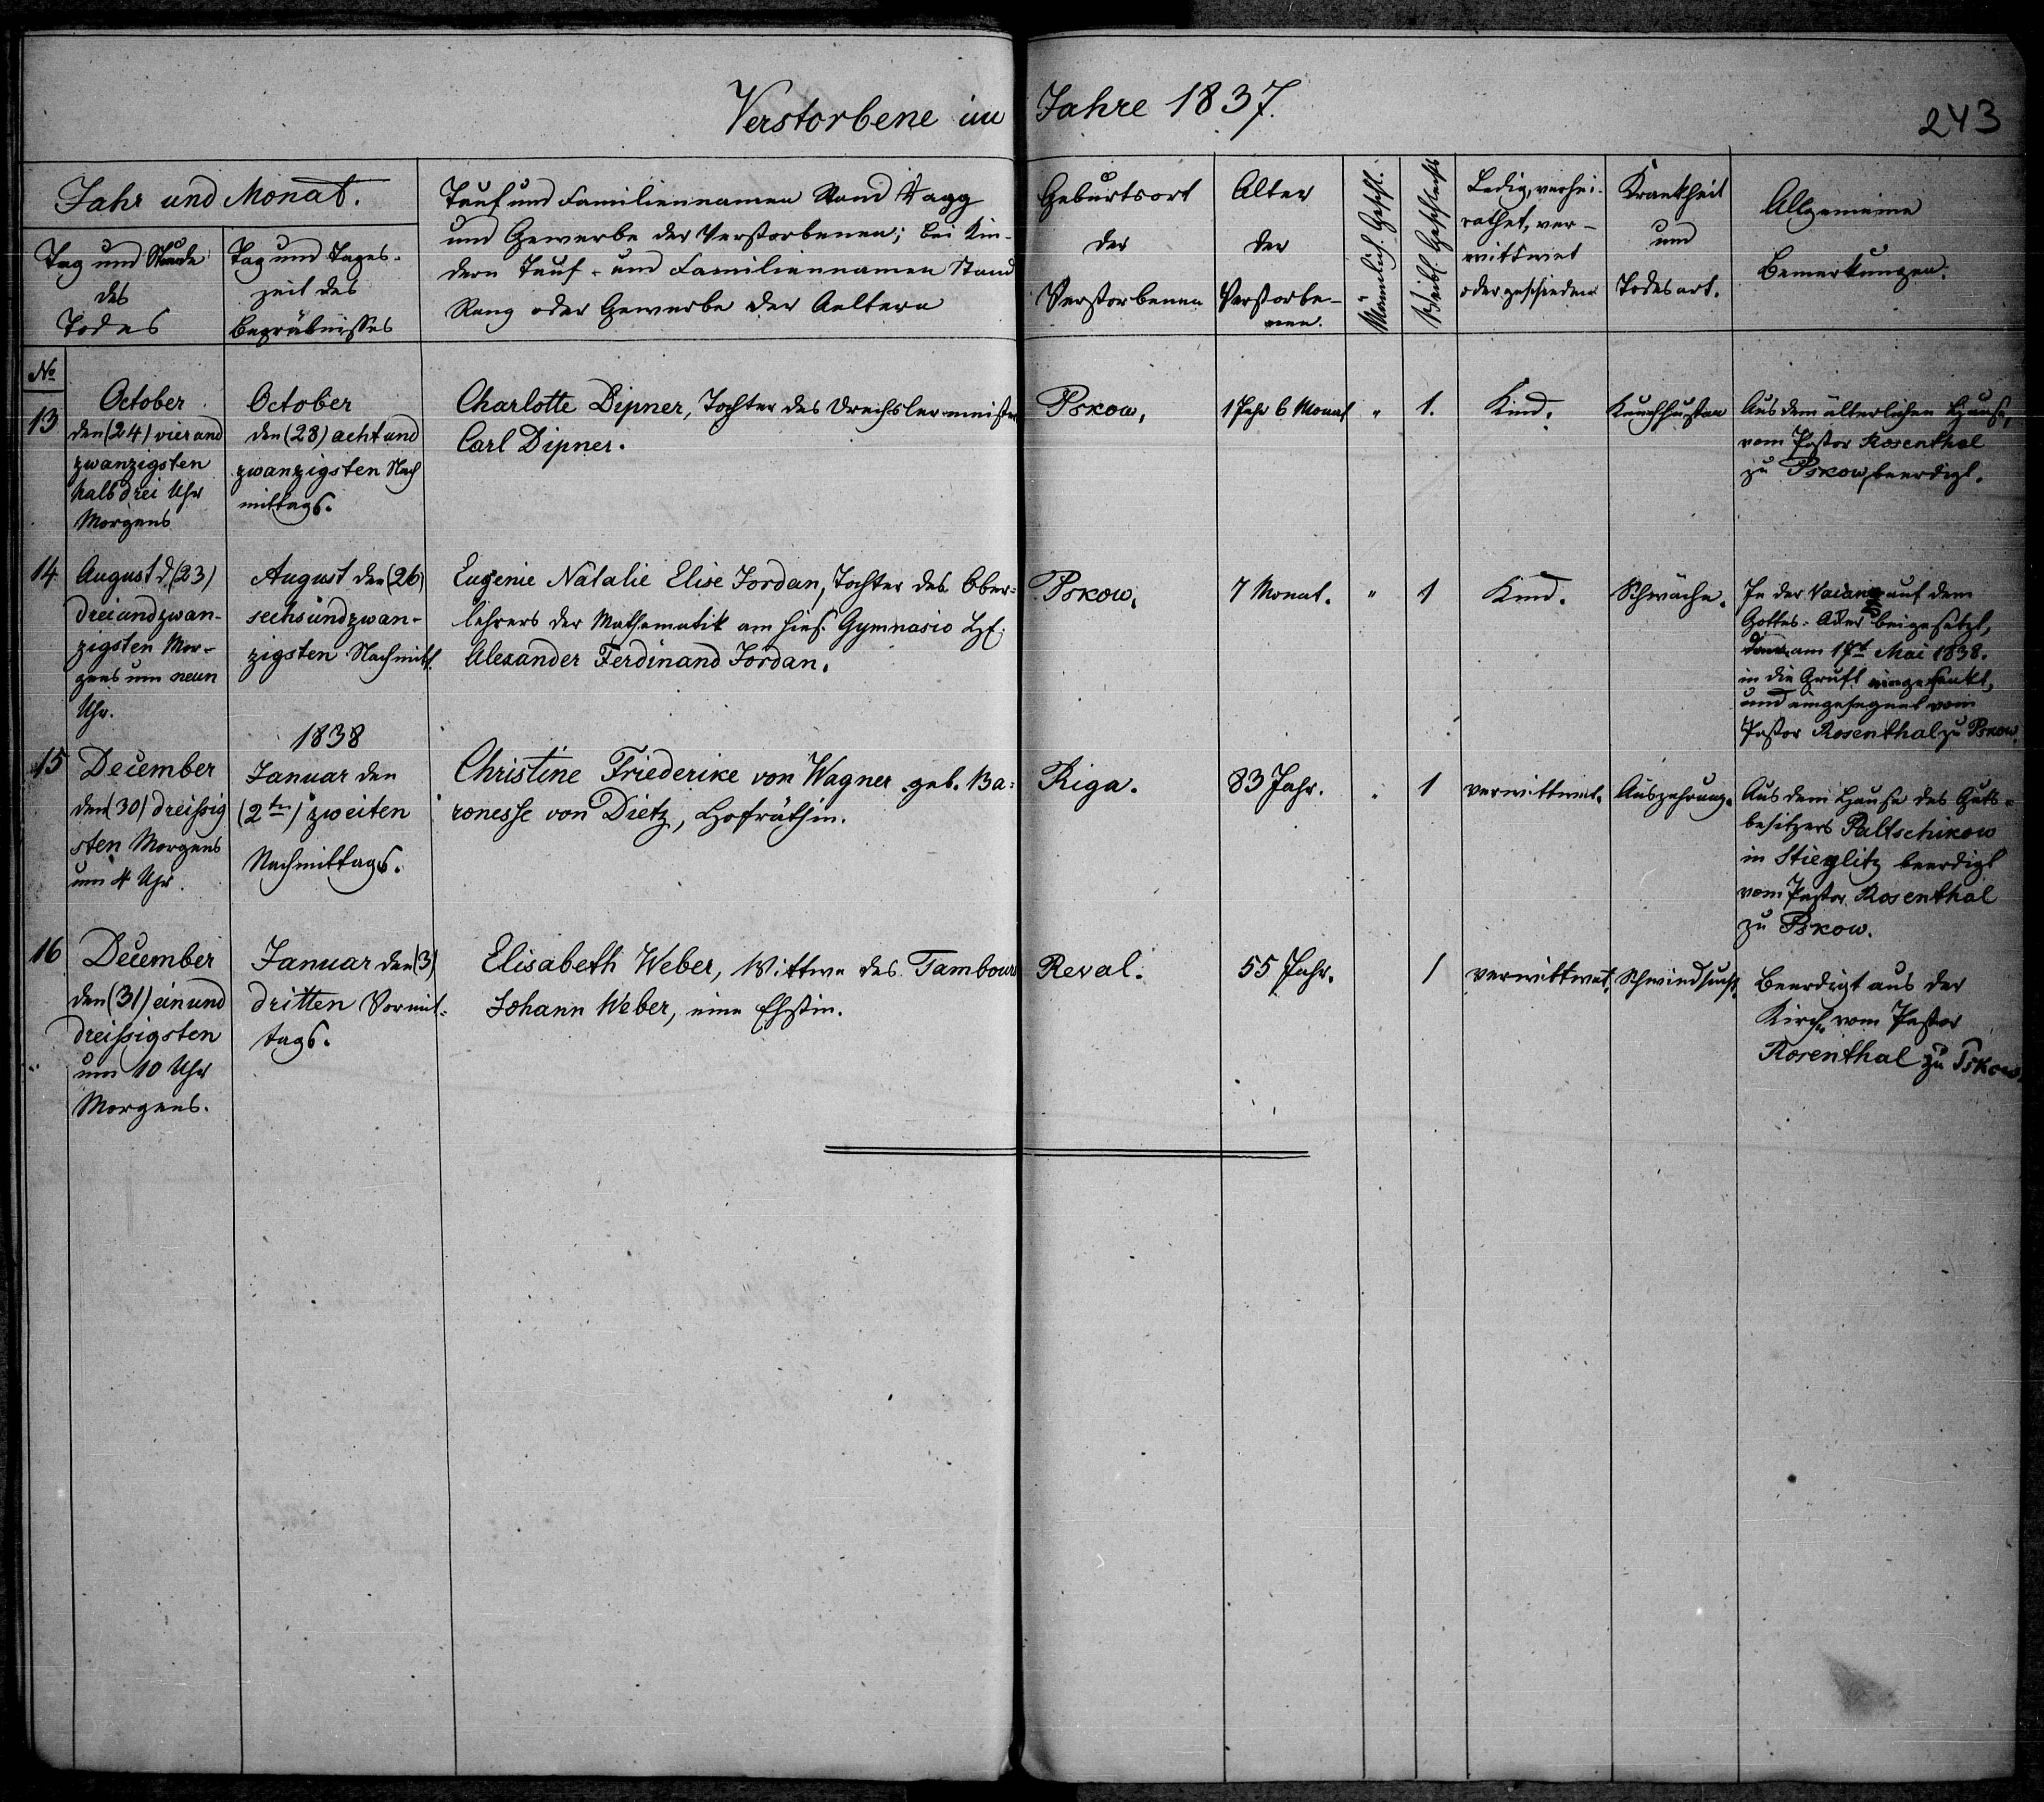 Verstorbene im Jahre 1837.
243
Jahr und Monat.
Tag und Stunde
des
Todes
Tag und Tages-
zeit des
Begräbnißes
Tauf und Familiennamen Stand
und Gewerbe der Verstorbenen; bei Kin-
dern Tauf- und Familiennamen Stand
Rang oder Gewerbe der Aeltern
Geburtsort
der
Verstorbenen
Alter
der
Verstorbe-
nen.
Männlich. Geschl.
Weibl. Geschlecht
Ledig, verhei-
rathet, ver-
wittwet
oder geschieden
Krankheit
und
Todesart.
Allgemeine
Bemerkungen.
No
13
October
den (24) vierund
zwanzigsten
halb drei Uhr
Morgens
October
den (28) acht und
zwanzigsten Nach
mittags.
Charlotte Dipner, Tochter des Drechslermeisters
Carl Dipner.
Pskow,
1 Jahr 6 Monat
"
1.
Kind.
Keuchhusten
Aus dem älterlichen Hause,
vom Pastor Rosenthal
zu Pskow, beerdigt.
14
August d. (23)
dreiundzwan-
zigsten Mor-
gens um neun
Uhr.
August den (26)
sechsundzwan-
zigsten Nachmitt.
Eugenie Natalie Elise Jordan, Tochter des Ober-
lehrers der Mathematik am hies. Gymnasio
Alexander Ferdinand Jordan.
Pskow.
7 Monat.
"
1
Kind.
Schwäche.
In der Vacanz auf dem
Gottes-Acker beigesetzt,
dann am 17t Mai 1838.
in die Gruft eingesenkt,
und eingesegnet vom
Pastor Rosenthal zu Pskow.
15
December
den (30) dreißig
sten Morgens
um 4 Uhr.
1838
Januar den
(2ten) zweiten
Nachmittags.
Christine Friederike von Wagner geb. Ba-
ronesse von Dietz, Hofräthin.
Riga.
83 Jahr.
"
1
verwittwet.
Auszehrung.
Aus dem Hause des Guts-
besitzers Paltschikow
in Stieglitz beerdigt
vom Pastor Rosenthal
zu Pskow.
16
December
den (31) ein und
dreißigsten
um 10 Uhr
Morgens.
Januar den (3)
dritten Vormit-
tags.
Elisabeth Weber, Wittwe des Tambours
Johann Weber, eine Ehstin.
Reval.
55 Jahr.
1
verwittwet.
Schwindsucht.
Beerdigt aus der
Kirche vom Pastor
Rosenthal zu Pskow.